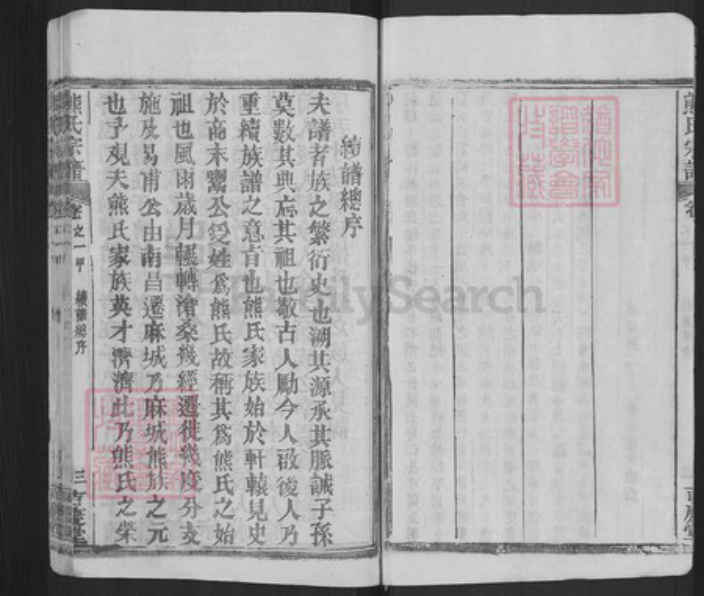 熊氏宗譜
續譜總序
夫譜者族之繁衍史也溯其源承其脈誠子孫
莫數其典忘其祖也敬古人勵今人啟後人乃
重續族譜之意旨也熊氏家族始於軒轅見史
於商末鬻公受姓為熊氏故稱其為熊氏之始
祖也風雨歲月輾轉滄桑幾經遷徙幾度分支
施及昜甫公由南昌遷麻城乃麻城熊族之元
也予观夫熊氏家族英才濟濟此乃熊氏之荣
熊氏宗譜
卷之一甲
續譜總序
三吉慶堂
FamilySearch